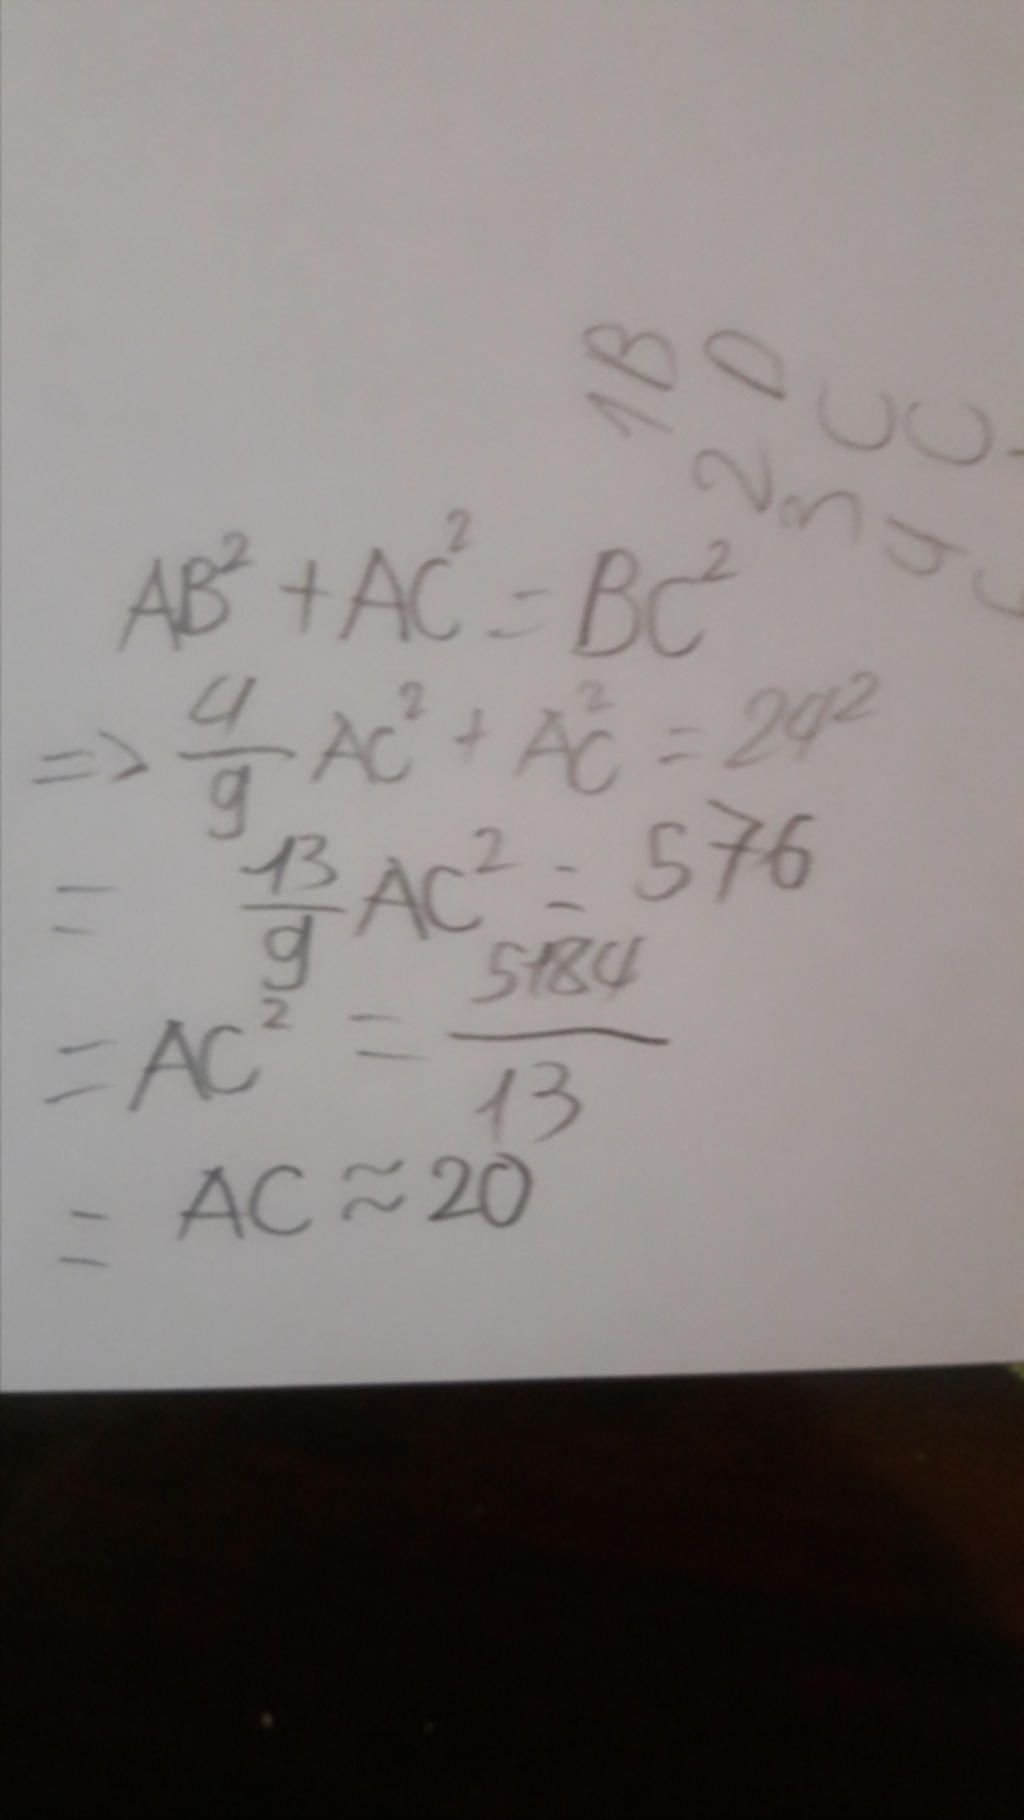 1B
2D
3C
4C
AB² + AC² = BC²
=> 4/9 AC² + AC² = 24²
= 13/9 AC² = 576
= AC² = 5184/13
= AC ≈ 20